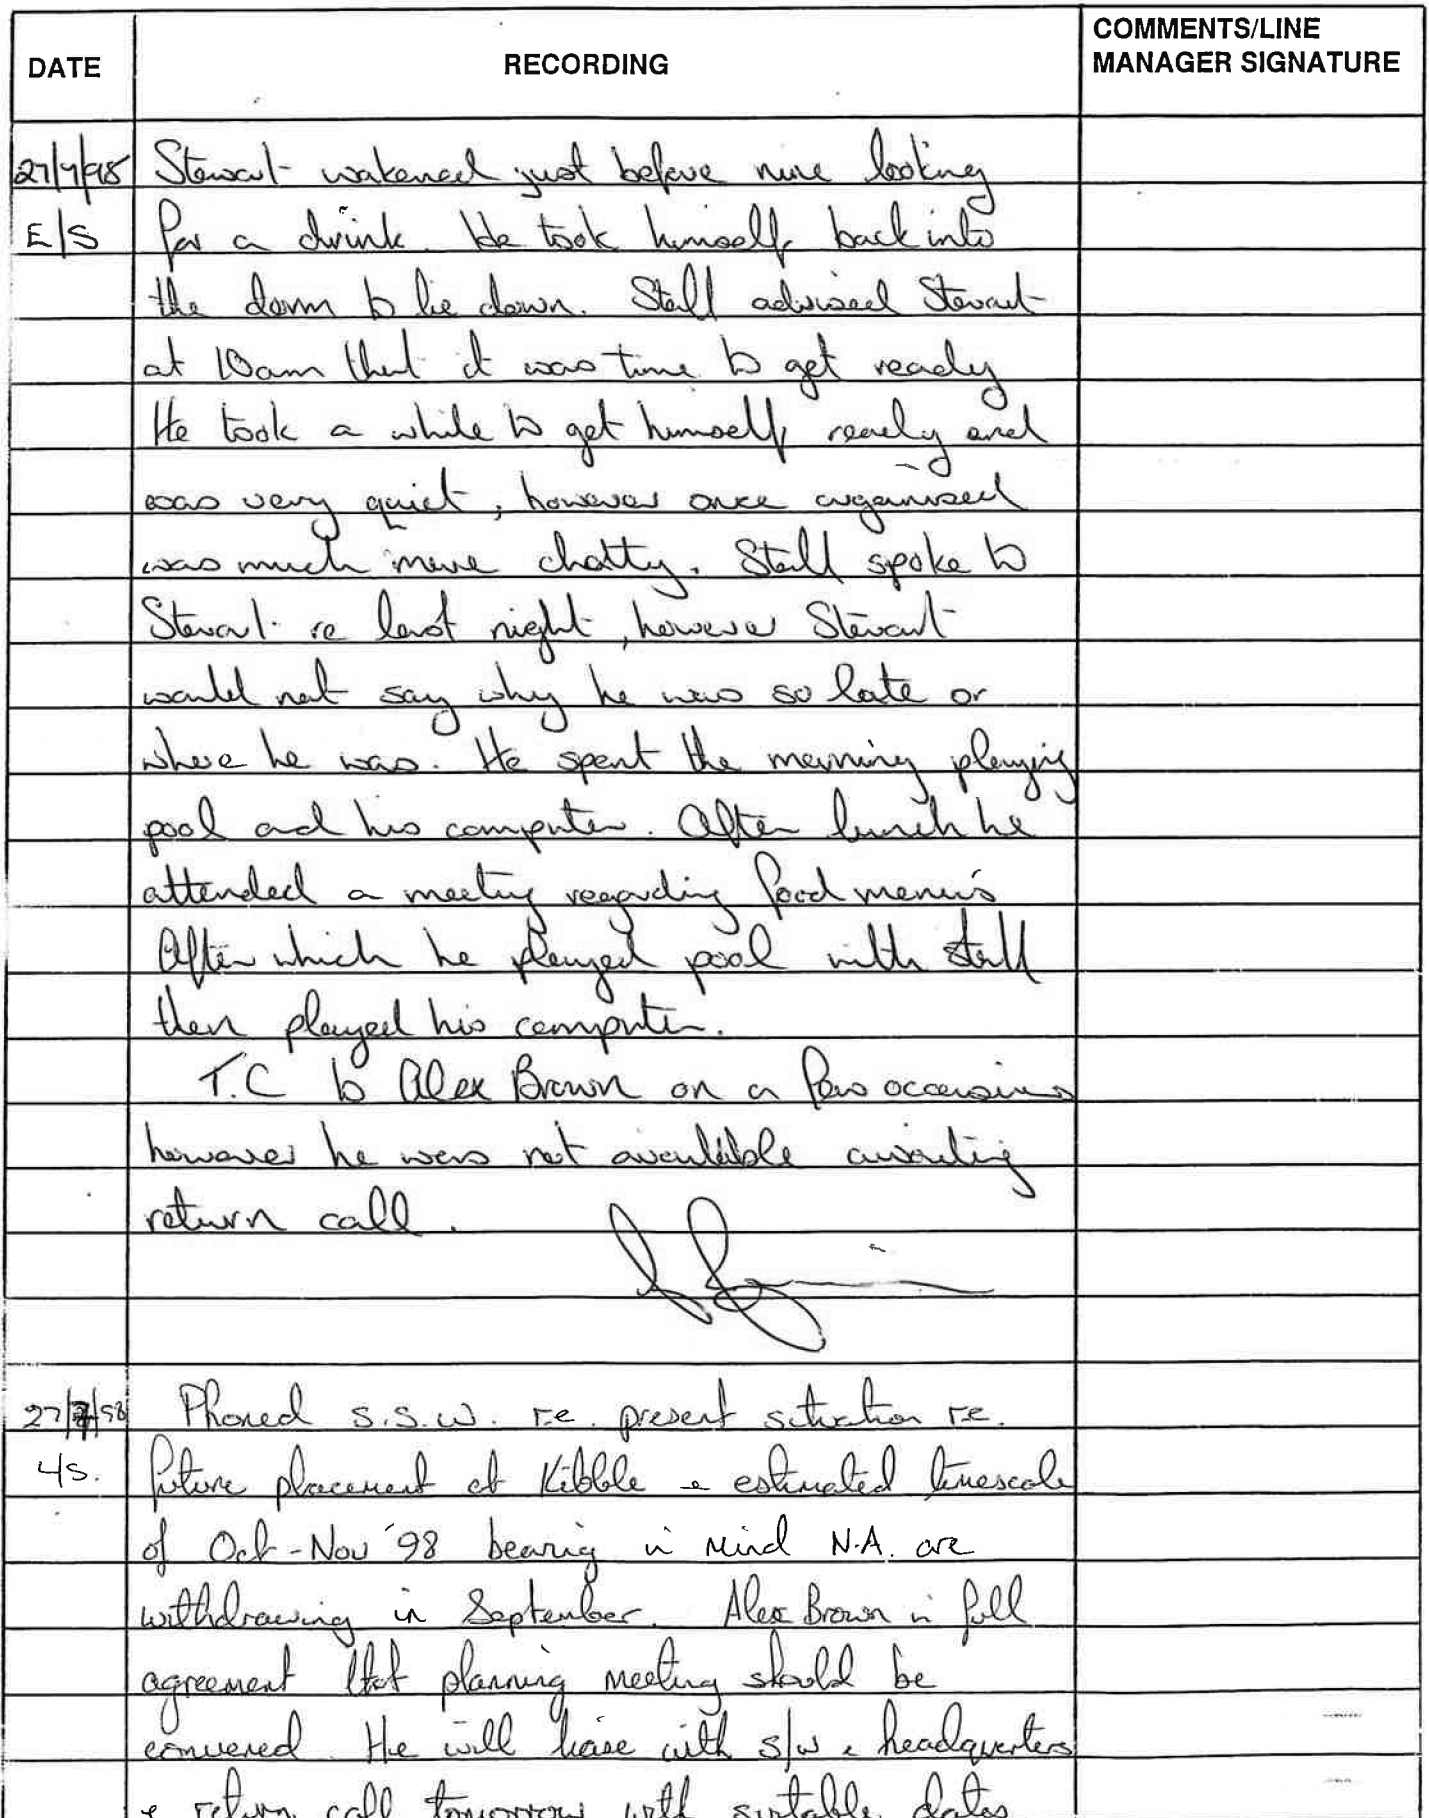 DATE RECORDING COMMENTS/LINE
MANAGER SIGNATURE
27/7/98 Stewart wakened just before nine looking
E/S for a drink. He took himself back into
the dorm to lie down. Staff advised Stewart
at 10am that it was time to get ready
He took a while to get himself ready and
was very quiet, however once organised
was much more chatty. Staff spoke to
Stewart re last night, however Stewart
would not say why he was so late or
where he was. He spent the morning playing
pool and his computer. After lunch he
attended a meeting regarding food menu's
After which he played pool with staff
then played his computer.
T.C to Alex Brown on a few occasions
however he was not available awaiting
return call.
27/7/98 Phoned S.S.W. r.e. present situation r.e.
future placement at Kibble & estimated timescale
of Oct-Nov '98 bearing in mind N.A. are
withdrawing in September. Alex Brown in full
agreement that planning meeting should be
convened. He will liaise with s/w & headquarters
& return call tomorrow with suitable dates